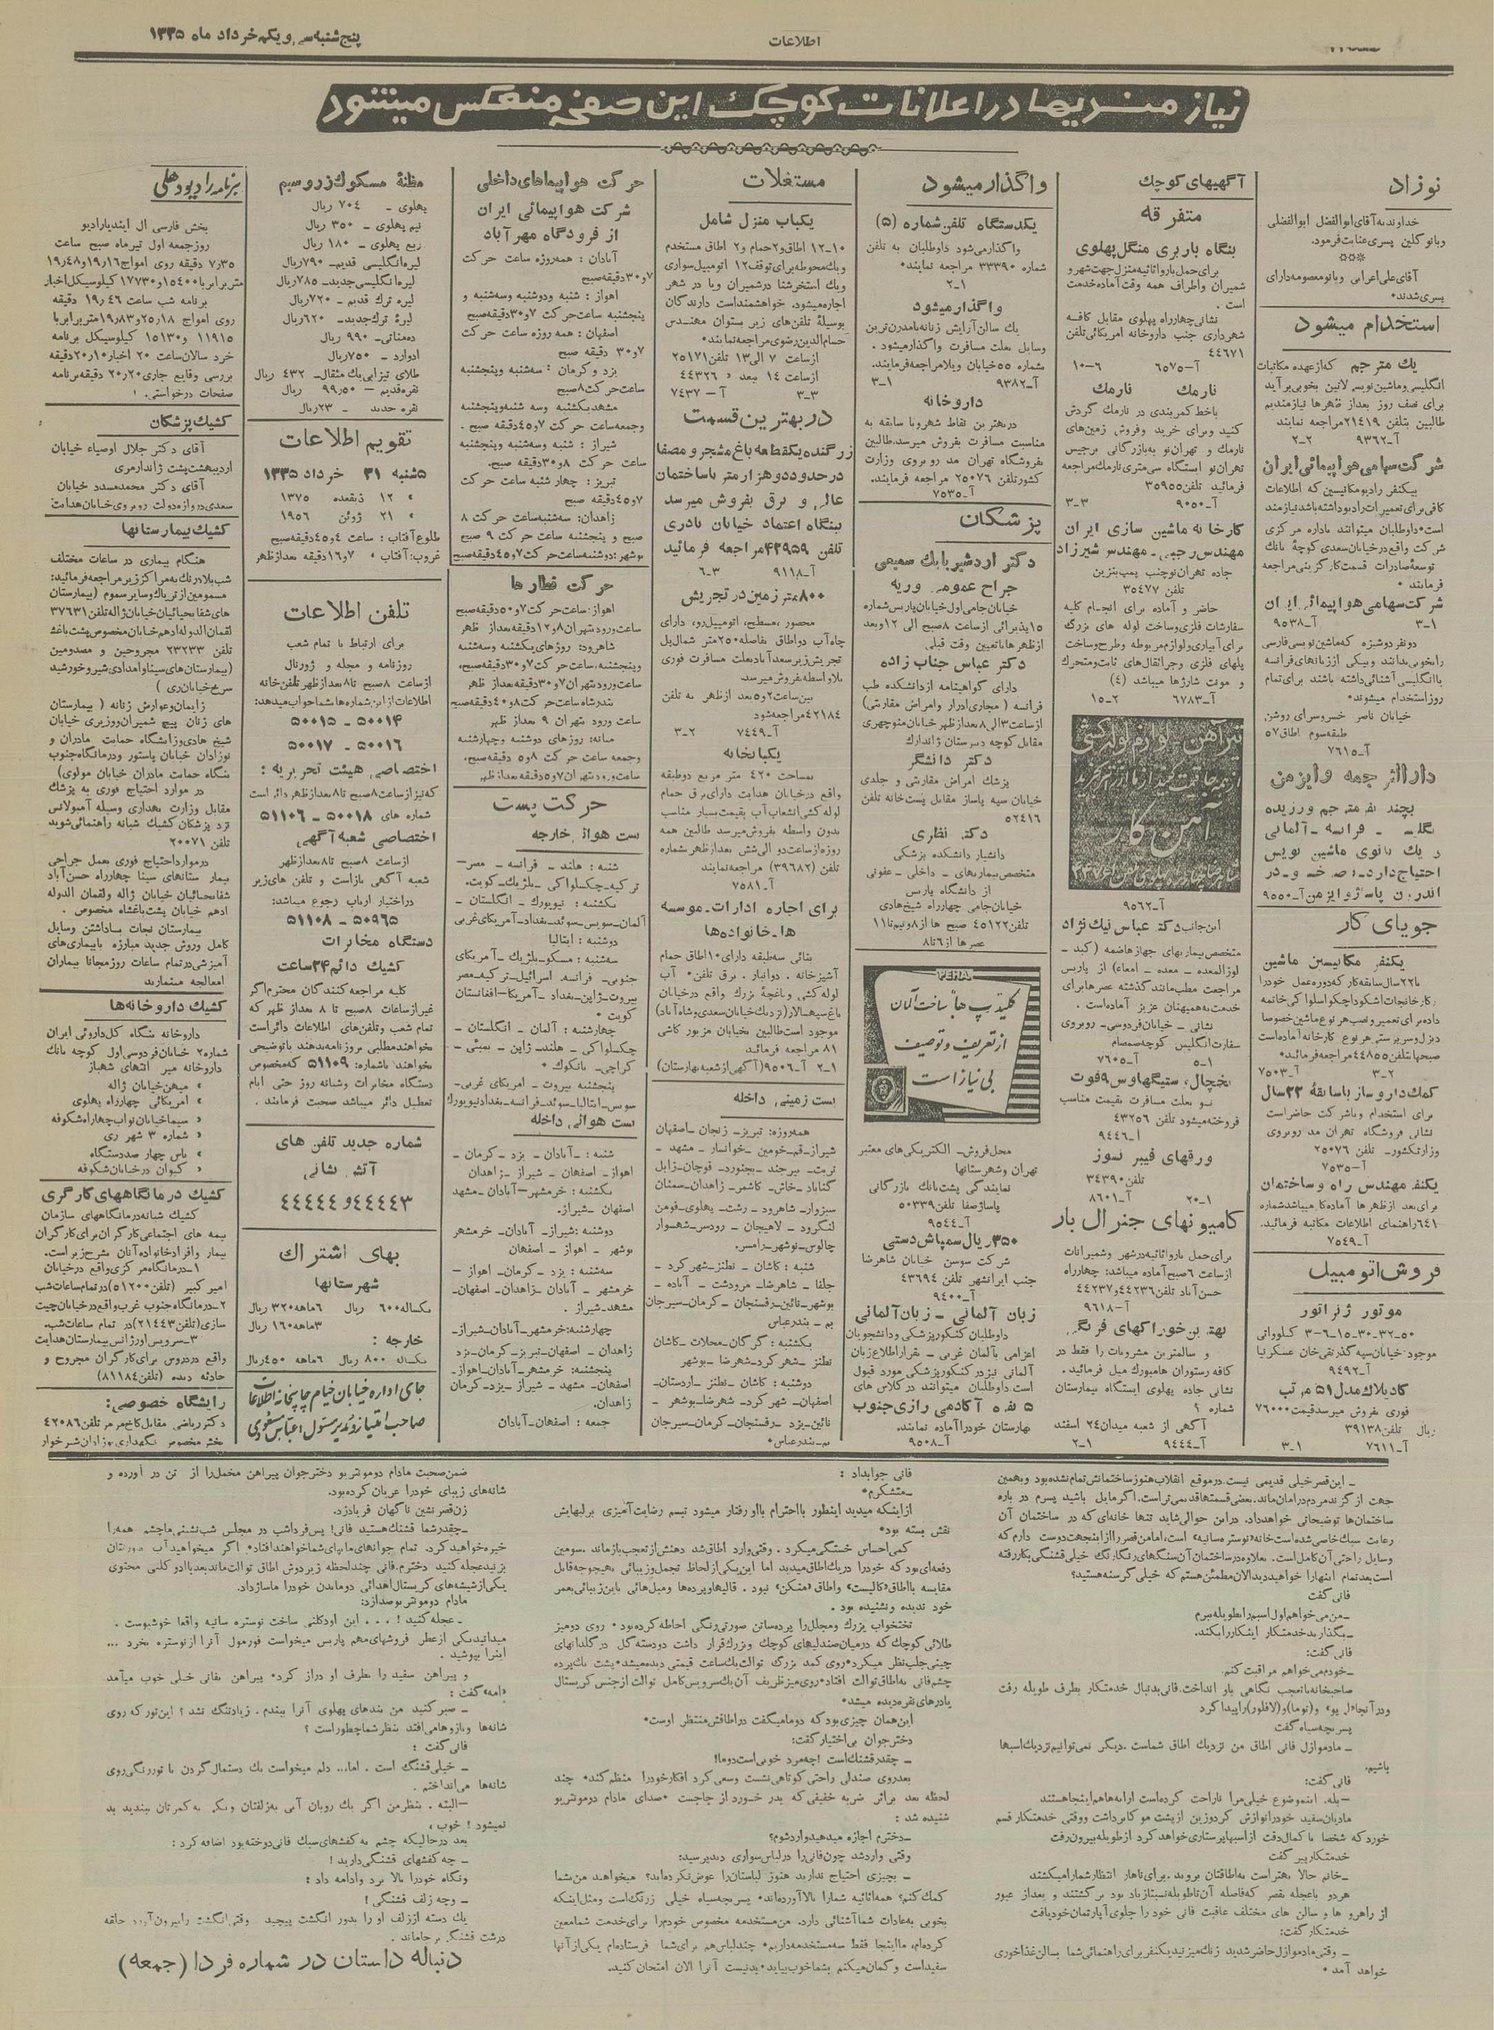 پنجشنبه سی ویکم خرداد ماه ۱۳۳۵
اطلاعات
نیازمندیها در اعلانات کوچک این صفحه منعکس میشود
نوزاد
خداوند به آقای ابوالفضل ابوالفضلی
وبانو گلین پسری عنایت فرمود.
***
آقای علی اعرابی وبانو معصومه دارای
پسری شدند.
استخدام میشود
یك مترجم که از عهده مکاتبات
انگلیسی وماشین نویسی لاتین بخوبی برآید
برای نصف روز بعد از ظهرها نیازمندیم
طالبین بتلفن ۲۱۴۱۹ مراجعه نمایند
آ-۹۳۶۲ ۲-۲
شرکت سهامی هواپیمائی ایران
بیکنفر رادیو مکانیسین که اطلاعات
کافی برای تعمیرات رادیو داشته باشد نیازمند
است. داوطلبان میتوانند باداره مرکزی
شرکت واقع در خیابان سعدی کوچهٔ بانك
توسعهٔ صادرات قسمت کارگزینی مراجعه
فرمایند.
شرکت سهامی هواپیمائی ایران
۳-۱ آ-۹۵۳۸
دونفر دوشیزه که ماشین نویسی فارسی
را بخوبی بدانند وبیکی از زبانهای فرانسه
یا انگلیسی آشنائی داشته باشند برای تمام
روز استخدام میشوند.
خیابان ناصر خسرو سرای روشن
طبقه سوم اطاق ۵۷
آ-۷۶۱۵
دارالترجمه وایزمن
بچند نفر مترجم ورزیده
انگلیسی - فرانسه - آلمانی
و یك بانوی ماشین نویس
آ-۹۵۵۰
جویای کار
یکنفر مکانیسین ماشین
صبحها بتلفن ۴۴۸۵۵ مراجعه فرمائید.
۳-۲ آ-۷۵۰۳
کمك داروساز با سابقهٔ ۲۲ سال
برای استخدام ویا شرکت حاضر است
نشانی فروشگاه تهران مد روبروی
وزارت کشور- تلفن ۲۵۰۷۶
آ-۷۵۳۵
یکنفر مهندس راه وساختمان
برای بعد از ظهرها آماده کار میباشد شماره
۶۴۱ راهنمای اطلاعات مکاتبه فرمائید.
آ-۷۵۴۹
فروش اتومبیل
موتور ژنراتور
۵۰-۳۲-۳۰-۱۵-۶-۳ کیلوواتی
موجود خیابان سپه گذر تقی خان عسکر نیا
آ-۹۴۹۲
کادیلاك مدل ۵۱ مرتب
فوری بفروش میرسد قیمت ۷۶۰۰۰
ریال تلفن ۳۹۱۳۸
آ-۷۶۱۱ ۳-۱
آگهیهای کوچك
متفرقه
بنگاه باربری منگل پهلوی
برای حمل بار واثاثیه منزل جهت شهر و
شمیران واطراف همه وقت آماده خدمت
است.
نشانی چهارراه پهلوی مقابل کافه
شهرداری جنب داروخانه امریکائی تلفن
۴۴۶۷۱
آ-۶۵۷۵ ۱۰-۶
نارمك نارمك
باخط کمربندی در نارمك گردش
کنید وبرای خرید وفروش زمین‌های
نارمك و تهران نو به بازرگانی برجیس
تهران نو ایستگاه سی متری نارمك مراجعه
فرمائید تلفن ۳۵۹۵۵
آ-۹۰۵۰ ۳-۳
کارخانه ماشین سازی ایران
مهندس رجبی - مهندس شیرزاد
جاده تهران نو جنب پمپ بنزین
تلفن ۳۵۴۷۷
حاضر و آماده برای انجام کلیه
سفارشات فلزی وساخت لوله های بزرگ
برای آبیاری ولوازم مربوطه وطرح وساخت
پلهای فلزی وجراثقال‌های ثابت ومتحرك
و مونت شارژها میباشد (۴)
آ-۶۷۸۳ ۱۵-۲
تیرآهن - لوازم لوله کشی
آهن کار
آ-۹۵۶۲
این جانب دکتر عباس نیك نژاد
متخصص بیماریهای جهاز هاضمه (کبد -
لوزالمعده - معده - امعاء) از پاریس
مراجعت مطب مانند گذشته عصرها برای
خدمت به همیهنان عزیز آماده است.
نشانی - خیابان فردوسی - روبروی
سفارت انگلیس کوچه صمصام
۵-۱ آ-۷۶۰۵
یخچال وستینگهاوس ۹ فوت
نو بعلت مسافرت بقیمت مناسب
فروخته میشود تلفن ۴۳۲۵۶
آ-۹۴۴۶
ورقهای فیبر نسوز
تلفن ۳۴۳۹۰
۲۰-۱ آ-۸۶۰۱
کامیونهای جنرال بار
برای حمل بار واثاثیه در شهر وشمیرانات
از ساعت ۶ صبح آماده میباشد: چهارراه
حسن آباد تلفن ۴۴۲۳۶ و ۴۴۲۳۷
آ-۹۶۱۸
بهترین خوراکهای فرنگی
و سالمترین مشروبات را فقط در
کافه رستوران هامبورك میل فرمائید.
نشانی جاده پهلوی ایستگاه بیمارستان
شماره ۲
آگهی از شعبه میدان ۲۴ اسفند
آ-۹۴۴۴ ۲-۱
واگذار میشود
یکدستگاه تلفن شماره (۵)
واگذار می‌شود داوطلبان به تلفن
شماره ۳۳۳۹۰ مراجعه نمایند.
۲-۱
واگذار میشود
یك سالن آرایش زنانه با مدرن ترین
وسایل بعلت مسافرت واگذار میشود.
شماره ۵۵ خیابان ویلا مراجعه فرمایند.
آ-۹۳۸۲ ۳-۱
داروخانه
در بهترین نقاط شهر و با سابقه به
مناسبت مسافرت بفروش میرسد. طالبین
بفروشگاه تهران مد روبروی وزارت
کشور تلفن ۲۵۰۷۶ مراجعه فرمایند.
آ-۷۵۳۵
پزشکان
دکتر اردشیر بابك سمیعی
جراح عمومی وریه
خیابان جامی اول خیابان پارس شماره
۱۵ پذیرائی از ساعت ۸ صبح الی ۱۲ وبعد
از ظهرها با تعیین وقت قبلی
دکتر عباس جناب زاده
دارای گواهینامه از دانشکده طب
فرانسه (مجاری ادرار وامراض مقاربتی)
از ساعت ۳ الی ۸ بعد از ظهر خیابان منوچهری
مقابل کوچه دبیرستان ژاندارك
دکتر دانشگر
پزشك امراض مقاربتی و جلدی
خیابان سپه پاساژ مقابل پست خانه تلفن
۵۲۴۱۶
دکتر نظری
دانشیار دانشکده پزشکی
متخصص بیماریهای - داخلی - عفونی
از دانشگاه پاریس
خیابان جامی چهارراه شیخ هادی
تلفن ۴۵۱۲۲ صبح ها از ۸ ونیم تا ۱۱
عصرها از ۶ تا ۸
PEHA
کلید پ ها ساخت آلمان
از تعریف و توصیف
بی نیاز است
محل فروش - الکتریکی‌های معتبر
تهران وشهرستانها
نمایندگی پشت بانك بازرگانی
پاساژ صفا تلفن ۵۰۳۳۹
آ-۹۵۴۴
۳۵۰ ریال سمپاش دستی
شرکت سوسن خیابان شاهرضا
جنب ایرانشهر تلفن ۴۳۶۹۴
آ-۹۴۰۰
زبان آلمانی - زبان آلمانی
داوطلبان کنکور پزشکی ودانشجویان
اعزامی بآلمان غربی - بقرار اطلاع زبان
آلمانی نیز در کنکور پزشکی مورد قبول
است. داوطلبان میتوانند در کلاس های
۵ نفره آکادمی رازی جنوب
بهارستان خود را آماده نمایند.
آ-۹۵۰۸
مستغلات
یکباب منزل شامل
۱۰-۱۲ اطاق و ۲ حمام و ۲ اطاق مستخدم
ویك محوطه برای توقف ۱۲ اتومبیل سواری
ویك استخر شنا در شمیران ویا در شهر
اجاره میشود. خواهشمند است دارندگان
بوسیلهٔ تلفن‌های زیر بستوان مهندس
حسام الدین رضوی مراجعه نمایند.
از ساعت ۷ الی ۱۳ تلفن ۲۵۱۷۱
از ساعت ۱۴ ببعد « ۴۴۳۲۶
۳-۳ آ-۷۴۳۷
در بهترین قسمت
زرگنده یکقطعه باغ مشجر و مصفا
در حدود دو هزار متر با ساختمان
عالی و برق بفروش میرسد
بنگاه اعتماد خیابان نادری
تلفن ۴۲۹۵۹ مراجعه فرمائید
آ-۹۱۱۸ ۶-۳
۸۰۰ متر زمین در تجریش
محصور، مسطح، اتومبیل رو، دارای
چاه آب دو اطاق بفاصله ۲۵۰ متر شمال پل
تجریش زیر سعدآباد بعلت مسافرت فوری
بلا واسطه بفروش میرسد.
بین ساعت ۲ و ۵ بعد از ظهر به تلفن
۴۲۱۸۴ مراجعه شود
آ-۷۴۴۹ ۳-۲
یکبابخانه
بمساحت ۴۲۰ متر مربع دوطبقه
واقع در خیابان هدایت دارای برق حمام
لوله کشی انشعاب آب بقیمت بسیار مناسب
بدون واسطه بفروش میرسد طالبین همه
روزه از ساعت دو الی شش بعد از ظهر شماره
تلفن (۳۹۶۸۲) مراجعه نمایند
آ-۷۵۸۱
برای اجاره ادارات - موسسه
ها - خانواده‌ها
بنائی سه طبقه دارای ۱۰ اطاق حمام
آشپزخانه. دو انبار. برق تلفن. آب
لوله کشی وباغچهٔ بزرك واقع در خیابان
باغ سپهسالار (نزدیك خیابان سعدی وشاه آباد)
موجود است طالبین بخیابان مزبور کاشی
۸۱ مراجعه فرمائید
۲-۱ آ-۹۵۰۶ (آگهی از شعبه بهارستان)
پست زمینی داخله
همه روزه: تبریز - زنجان - اصفهان
شیراز - قم - خومین - خوانسار - مشهد -
تربت - بیرجند - بجنورد - قوچان - زابل
گناباد - خاش - کاشمر - زاهدان - سمنان
سبزوار - شاهرود - رشت - پهلوی - فومن
لنگرود - لاهیجان - رودسر - شهسوار
چالوس - نوشهر - رامسر.
شنبه: کاشان - نطنز - شهرکرد -
جلفا - شاهرضا - مرودشت - آباده -
بوشهر - نائین - رفسنجان - کرمان - سیرجان
بم - بندرعباس
یکشنبه: گرگان - محلات - کاشان
نطنز - شهرکرد - شهرضا - بوشهر
دوشنبه: کاشان - نطنز - اردستان -
اصفهان - شهرکرد - شهرضا - بوشهر -
نائین - یزد - رفسنجان - کرمان - سیرجان
بم - بندرعباس.
حرکت هواپیماهای داخلی
شرکت هواپیمائی ایران
از فرودگاه مهرآباد
آبادان: همه روزه ساعت حرکت
۷ و ۳۰ دقیقه صبح
اهواز: شنبه ودوشنبه وسه شنبه و
پنجشنبه ساعت حرکت ۷ و ۳۰ دقیقه صبح
اصفهان: همه روزه ساعت حرکت
۷ و ۳۰ دقیقه صبح
یزد و کرمان: سه شنبه و پنجشنبه
ساعت حرکت ۸ صبح
مشهد یکشنبه وسه شنبه وپنجشنبه
وجمعه ساعت حرکت ۷ و ۴۵ دقیقه صبح.
شیراز: شنبه وسه شنبه وپنجشنبه
ساعت حرکت ۸ و ۳۰ دقیقه صبح.
تبریز: چهارشنبه ساعت حرکت
۷ و ۴۵ دقیقه صبح
زاهدان: سه شنبه ساعت حرکت ۸
صبح و پنجشنبه ساعت حرکت ۹ صبح
بوشهر: دوشنبه ساعت حرکت ۷ و ۴۵ دقیقه صبح
حرکت قطارها
اهواز: ساعت حرکت ۷ و ۵۰ دقیقه صبح
ساعت ورود تهران ۸ و ۱۲ دقیقه بعد از ظهر
شاهرود: روزهای یکشنبه وسه شنبه
وپنجشنبه، ساعت حرکت ۷ و ۳۰ دقیقه صبح،
ساعت ورود تهران ۷ و ۳۰ دقیقه بعد از ظهر
بندرشاه ساعت حرکت ۸ و ۴۰ دقیقه صبح
ساعت ورود تهران ۹ بعد از ظهر
میانه: روزهای دوشنبه وچهارشنبه
وجمعه ساعت حرکت ۸ و ۵ دقیقه صبح،
ساعت ورود تهران ۷ و ۵ دقیقه بعد از ظهر
حرکت پست
پست هوائی خارجه
شنبه: هلند - فرانسه - مصر -
ترکیه - چکسلواکی - بلژیك - کویت.
یکشنبه: نیویورك - انگلستان -
آلمان - سویس - سوئد - بغداد - آمریکای غربی
دوشنبه: ایتالیا
سه شنبه: مسکو - بلژیك - آمریکای
جنوبی - فرانسه - اسرائیل - ترکیه - مصر
بیروت - ژاپن - بغداد - آمریکا - افغانستان
کویت.
چهارشنبه: آلمان - انگلستان -
چکسلواکی - هلند - ژاپن - بمبئی -
کراچی - بانکوك.
پنجشنبه بیروت - امریکای غربی -
سویس - ایتالیا - سوئد - فرانسه - بغداد - نیویورك
پست هوائی داخله
شنبه: - آبادان - یزد - کرمان -
اهواز - اصفهان - شیراز - زاهدان
یکشنبه: خرمشهر - آبادان - مشهد
اصفهان - شیراز.
دوشنبه: شیراز - آبادان - خرمشهر
بوشهر - اهواز - اصفهان
سه شنبه: یزد - کرمان - اهواز -
خرمشهر - آبادان - زاهدان - اصفهان -
مشهد - شیراز.
چهارشنبه: خرمشهر - آبادان - شیراز -
زاهدان - اصفهان - تبریز - کرمان - یزد
پنجشنبه: خرمشهر - آبادان - اهواز -
اصفهان - مشهد - شیراز - یزد - کرمان
زاهدان.
جمعه: اصفهان - آبادان
مظنهٔ مسکوك زر و سیم
پهلوی - ۷۰۴ ریال
نیم پهلوی - ۳۵۰ ریال
ربع پهلوی - ۱۸۰ ریال
لیره انگلیسی قدیم - ۷۹۰ ریال
لیره انگلیسی جدید - ۷۸۵ ریال
لیره ترك قدیم - ۷۲۰ ریال
لیرهٔ ترك جدید - ۶۲۰ ریال
ده مناتی - ۹۹۰ ریال
ادوارد - ۷۵۰ ریال
طلای تیزابی یك مثقال - ۴۳۲ ریال
نقره قدیم - ۹۹/۵۰ ریال
نقره جدید - ۲۳ ریال
تقویم اطلاعات
۵شنبه ۳۱ خرداد ۱۳۳۵
« ۱۲ ذیقعده ۱۳۷۵
« ۲۱ ژوئن ۱۹۵۶
طلوع آفتاب: ساعت ۴ و ۴۵ دقیقه صبح
غروب آفتاب « ۷ و ۱۶ دقیقه بعد از ظهر
تلفن اطلاعات
برای ارتباط با تمام شعب
روزنامه و مجله و ژورنال
از ساعت ۸ صبح تا ۸ بعد از ظهر تلفن خانه
اطلاعات از این شماره‌ها بشما جواب میدهد:
۵۰۰۱۴ - ۵۰۰۱۵
۵۰۰۱۶ - ۵۰۰۱۷
اختصاصی هیئت تحریریه:
که نیز از ساعت ۸ صبح تا ۸ بعد از ظهر دائر است
شماره های ۵۰۰۱۸ - ۵۱۱۰۶
اختصاصی شعبه آگهی
از ساعت ۸ صبح تا ۸ بعد از ظهر
شعبه آگهی باز است و تلفن های زیر
در اختیار ارباب رجوع میباشد:
۵۰۹۶۵ - ۵۱۱۰۸
دستگاه مخابرات
کشیك دائم ۲۴ ساعت
کلیه مراجعه کنندگان محترم اگر
غیر از ساعات ۸ صبح تا ۸ بعد از ظهر که
تمام شعب وتلفن‌های اطلاعات دائر است
بخواهند مطلبی بروزنامه بدهند یا توضیحی
بخواهند. باشماره: ۵۱۱۰۹ که مخصوص
دستگاه مخابرات وشبانه روز حتی ایام
تعطیل دائر میباشد صحبت فرمایند.
شماره جدید تلفن های
آتش نشانی
۴۴۴۴۳ و ۴۴۴۴۴
بهای اشتراك
شهرستانها
یکساله ۶۰۰ ریال ۶ماهه ۳۲۰ ریال
۳ماهه ۱۶۰ ریال
خارجه:
یکساله ۸۰۰ ریال ۶ماهه ۴۵۰ ریال
جای اداره خیابان خیام چاپخانه اطلاعات
صاحب امتیاز و مدیر مسئول عباس مسعودی
برنامه رادیو دهلی
بخش فارسی ال ایندیا رادیو
روز جمعه اول تیرماه صبح ساعت
برنامه شب ساعت ۱۹/۴۶ دقیقه
۱۱۹۱۵ و ۱۵۱۳۰ کیلوسیکل برنامه
خردسالان ساعت ۲۰ اخبار ۲۰/۱۰ دقیقه
بررسی وقایع جاری ۲۰/۲۰ دقیقه برنامه
صفحات درخواستی.
کشیك پزشکان
آقای دکتر جلال اوصیاء خیابان
اردیبهشت پشت ژاندارمری
آقای دکتر محمد مسدد خیابان
سعدی دروازه دولت روبروی خیابان هدایت
کشیك بیمارستانها
هنگام بیماری در ساعات مختلف
شب بلادرنك به مراکز زیر مراجعه فرمائید:
مسمومین از تریاك وسایر سموم (بیمارستان
های شفا یحیائیان خیابان ژاله تلفن ۳۷۶۳۱
لقمان الدوله ادهم خیابان مخصوص پشت باغشاه
تلفن ۲۳۲۳۳ مجروحین و مصدومین
(بیمارستان‌های سینا و امدادی شیر وخورشید
سرخ خیابان ری)
زایمان وعوارض زنانه (بیمارستان
های زنان پیچ شمیران وزیری خیابان
شیخ هادی وزایشگاه حمایت مادران و
نوزادان خیابان پاستور ودرمانگاه جنوب
بنگاه حمایت مادران خیابان مولوی)
در موارد احتیاج فوری به پزشك
مقابل وزارت بهداری وسیله آمبولانس
نزد پزشکان کشیك شبانه راهنمائی شوید
تلفن ۲۰۰۷۱
در موارد احتیاج فوری بعمل جراحی
بیمارستانهای سینا چهارراه حسن آباد
شفا یحیائیان خیابان ژاله ولقمان الدوله
ادهم خیابان پشت باغشاه مخصوص.
بیمارستان نجات با داشتن وسایل
کامل وروش جدید مبارزه با بیماری‌های
آمیزشی در تمام ساعات روز مجانا بیماران
را معالجه مینماید
کشیك داروخانه‌ها
داروخانه بنگاه کل داروئی ایران
شماره ۲ خیابان فردوسی اول کوچه بانك
داروخانه میر انتهای شهباز
« میهن خیابان ژاله
« امریکائی چهارراه پهلوی
« سینا خیابان نواب چهارراه شکوفه
« شماره ۳ شهر ری
« یاس چهار صد دستگاه
« کیوان در خیابان شکوفه
کشیك درمانگاههای کارگری
کشیك شبانه درمانگاهای سازمان
بیمه های اجتماعی کارگران برای کارگران
بیمار وافراد خانواده آنان بشرح زیر است.
۱- درمانگاه مرکزی واقع در خیابان
امیرکبیر (تلفن ۵۱۲۰۰) در تمام ساعات شب
۲- درمانگاه جنوب غرب واقع در خیابان چیت
سازی (تلفن ۲۱۴۴۳) در تمام ساعات شب.
۳- سرویس اورژانس بیمارستان هدایت
واقع در دروس برای کارگران مجروح و
حادثه دیده (تلفن ۸۱۱۸۴)
زایشگاه خصوصی:
دکتر ریاضی مقابل کاخ مرمر تلفن ۴۲۰۸۶
بخش مخصوص نگهداری نوزادان شیرخوار
- این قصر خیلی قدیمی نیست. در موقع انقلاب هنوز ساختمانش تمام نشده بود وبهمین
جهت از گزند مردم در امان ماند. بعضی قسمتها قدیمی تر است. اگر مایل باشید پسرم در باره
ساختمان‌ها توضیحاتی خواهد داد. در این حوالی شاید تنها خانه‌ای که در ساختمان آن
رعایت سبك خاصی شده است خانه «نوستر مسانیه» است، اما من قصر را از اینجهت دوست دارم که
وسایل راحتی آن کامل است. بعلاوه در ساختمان آن سنگهای رنگارنگ خیلی قشنگی بکار رفته
است بعد تمام اینها را خواهید دید الان مطمئن هستم که خیلی گرسنه هستید؟
فانی گفت
- من می‌خواهم اول اسبم را بطویله ببرم
- بگذارید خدمتکار اینکار را بکند.
فانی گفت:
- خودم می‌خواهم مراقبت کنم.
صاحبخانه با تعجب نگاهی باو انداخت. فانی بدنبال خدمتکار بطرف طویله رفت
پسر بچه سیاه گفت
- مادموازل فانی اطاق من نزدیك اطاق شماست. دیگر نمی‌توانیم نزدیك اسبها
باشیم.
فانی گفت:
- بله، اینموضوع خیلی مرا ناراحت کرده است ارابه ها هم اینجا هستند
مادیان سفید خود را نوازش کرد وزین از پشت مو کابرداشت ووقتی خدمتکار قسم
خورد که شخصا با کمال دقت از اسبها پرستاری خواهد کرد از طویله بیرون رفت
خدمتکار پیر گفت
- خانم حالا بهتر است به اطاقتان بروید. برای ناهار انتظار شما را میکشند
هر دو باعجله بقصر که فاصله آن تا طویله نسبتا زیاد بود برگشتند و بعد از عبور
از راهروها و سالن های مختلف عاقبت فانی خود را جلوی آپارتمان خود یافت
خدمتکار گفت:
- وقتی مادموازل حاضر شدید زنك میزنید یکنفر برای راهنمائی شما بسالن غذا خوری
خواهد آمد.
فانی جوابداد:
- متشکرم.
از اینکه میدید اینطور بااحترام بااو رفتار میشود تبسم رضایت آمیزی بر لبهایش
نقش بسته بود.
کمی احساس خستگی میکرد. وقتی وارد اطاق شد دهنش از تعجب باز ماند. سومین
دفعه‌ای بود که خود را در یك اطاق میدید اما این یکی از لحاظ تجمل وزیبائی هیچوجه قابل
مقایسه با اطاق «کالیست» واطاق «متکن» نبود. قالیها وپرده‌ها ومبل هائی باین زیبائی بعمر
خود ندیده ونشنیده بود.
تختخواب بزرك ومجلل را پرده‌ساتن صورتی رنگی احاطه کرده بود. روی دو میز
طلائی کوچك که در میان صندلیهای کوچك وبزرك قرار داشت دو دسته گل در گلدانهای
چینی جلب نظر میکرد. روی کمد بزرك توالت یك ساعت قیمتی دیده میشد. پشت یك پرده
چشم فانی به اطاق توالت افتاد. روی میز ظریف آن یك سرویس کامل توالت از جنس کریستال
با درهای نقره دیده میشد.
این همان چیزی بود که دوما میگفت در اطاقش منتظر اوست.
دختر جوان بی اختیار گفت:
- چقدر قشنك است! چه مرد خوبی است دوما!
بعد روی صندلی راحتی کوتاهی نشست وسعی کرد افکار خود را منظم کند. چند
لحظه بعد براثر ضربه خفیفی که بدر خورد از جا جست. صدای مادام دومونتریو
شنیده شد:
- دخترم اجازه میدهید وارد شوم؟
وقتی وارد شد چون فانی را در لباس سواری دید پرسید:
- بچیزی احتیاج ندارید هنوز لباستان را عوض نکرده‌اید؟ میخواهید من شما
کمك کنم؟ همه اثاثیه شما را بالا آورده‌اند. پسر بچه سیاه خیلی زرنك است ومثل اینکه
بخوبی به عادات شما آشنائی دارد. من مستخدمه مخصوص خودم را برای خدمت شما معین
کرده‌ام. ما اینجا فقط سه مستخدمه داریم. چند لباس هم برای شما فرستاده‌ام یکی از آنها
سفید است و گمان میکنم بشما خوب بیاید. بد نیست آنرا الان امتحان کنید.
ضمن صحبت مادام دومونتریو دختر جوان پیراهن مخمل را از تن در آورده و
شانه‌های زیبای خود را عریان کرده بود.
زن قصر نشین ناگهان فریاد زد.
- چقدر شما قشنك هستید فانی! پس فردا شب در مجلس شب نشینی ما چشم همه را
خیره خواهید کرد. تمام جوانهای ما بپای شما خواهند افتاد. اگر میخواهید آب صورتتان
بزنید عجله کنید دخترم. فانی چند لحظه زیر دوش اطاق توالت ماند بعد با ادوکلنی محتوی
یکی از شیشه‌های کریستال اهدائی دوما بدن خود را ماساژ داد.
مادام دومونتریو صدا زد:
- عجله کنید!... این اودکلنی ساخت نوستره سانیه واقعا خوشبوست.
میدانید یکی از عطر فروشهای مهم پاریس میخواست فورمول آنرا از نوستره بخرد ...
اینرا بپوشید.
و پیراهن سفید را بطرف او دراز کرد. پیراهن بفانی خیلی خوب میآمد
«امه» گفت:
- صبر کنید من بندهای پهلوی آنرا ببندم. زیاد تنگ نشد؟ این تور که روی
شانه‌ها وبازوها می‌افتد بنظر شما چطور است؟
فانی گفت:
- خیلی قشنك است. اما... دلم میخواست یك دستمال گردن یا تور رنگی روی
شانه‌ها می‌انداختم.
- البته. بنظر من اگر یك روبان آبی به زلفتان ویکی به کمرتان ببندید بد
نمیشود! خوب،
بعد در حالیکه چشم به کفشهای سبك فانی دوخته بود اضافه کرد:
- چه کفشهای قشنگی دارید!
ونگاه خود را بالا برد وادامه داد:
- وچه زلف قشنگی!
یك دسته از زلف او را بدور انگشت پیچید وقتی انگشت را بیرون آورد حلقه
درشت قشنگی برجا ماند.
دنباله داستان در شماره فردا (جمعه)